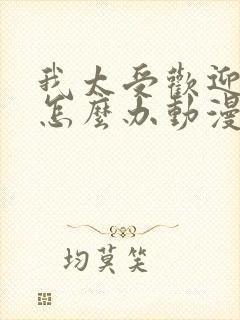 我太受歡迎
怎麼办動漫
均莫笑